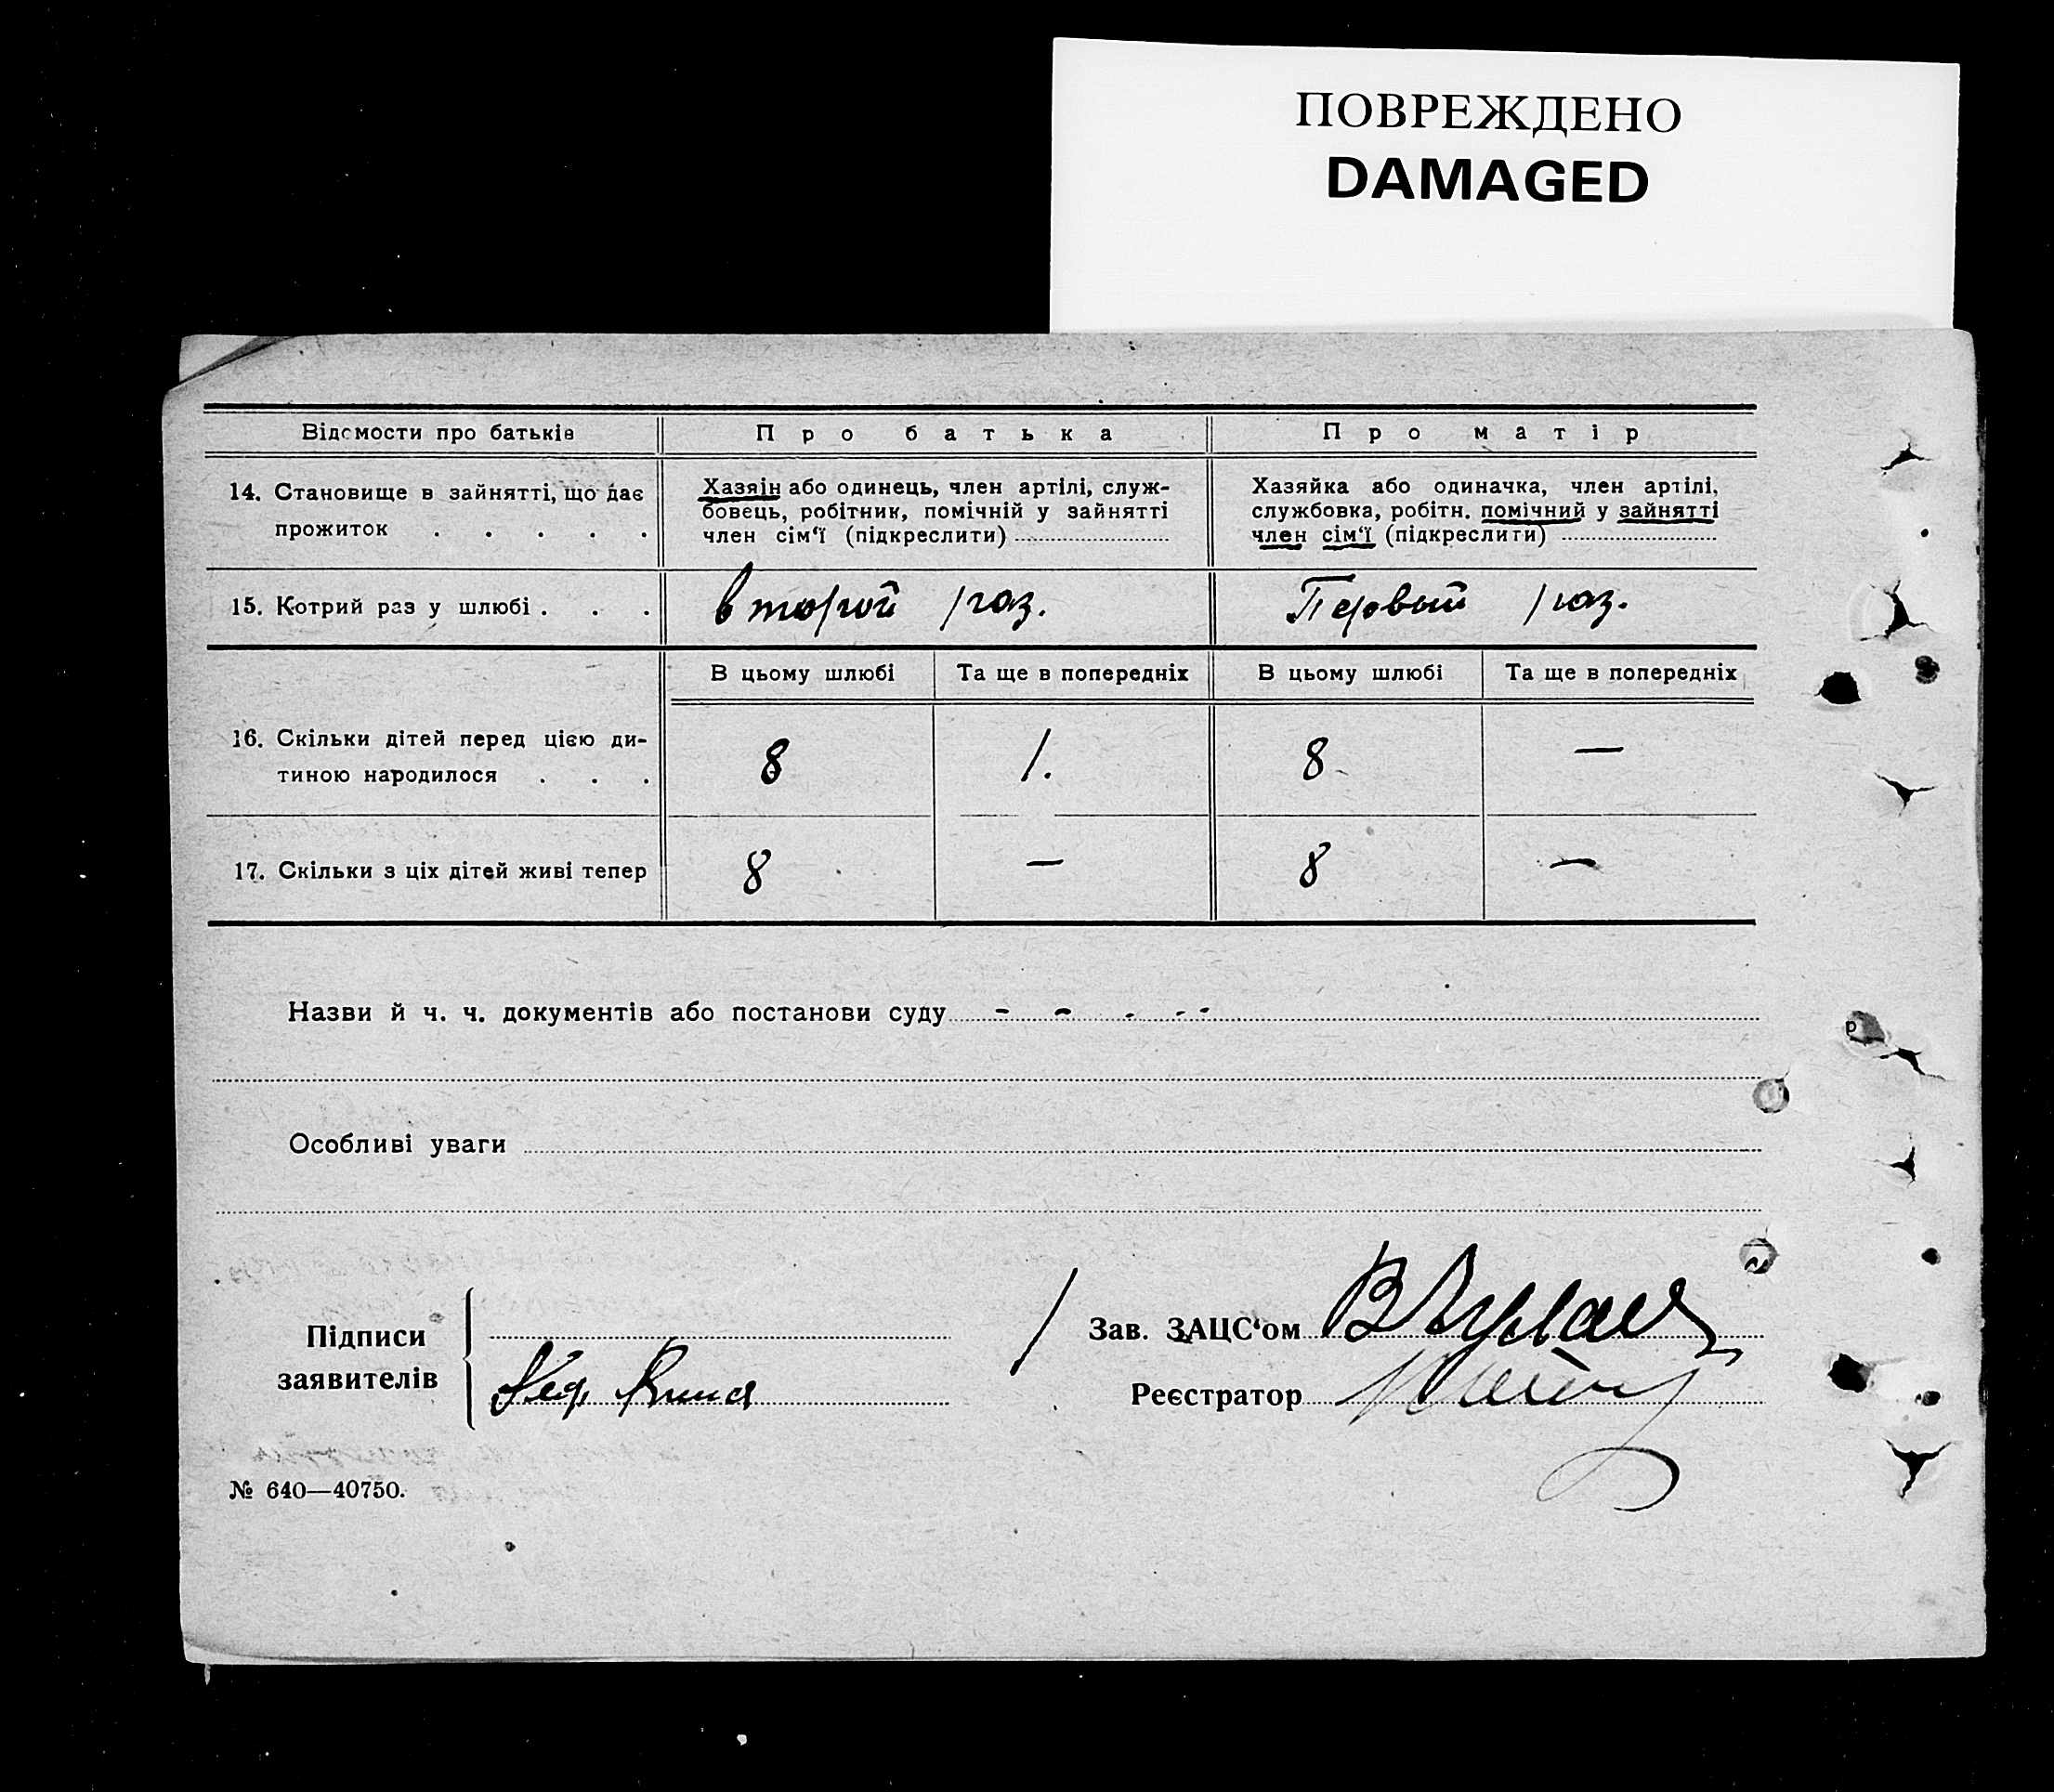 ПОВРЕЖДЕНО
DAMAGED
Відомости про батьків
Про батька
Про матір
14. Становище в зайнятті, що дає
прожиток . . . . .
Хазяїн або одинець, член артілі, служ-
бовець, робітник, помічній у зайнятті
член сім‘ї (підкреслити)
Хазяйка або одиначка, член артілі,
службовка, робітн. помічний у зайнятті
член сім‘ї (підкреслити)
15. Котрий раз у шлюбі . . .
второй раз.
Первый раз.
В цьому шлюбі
Та ще в попередніх
В цьому шлюбі
Та ще в попередніх
16. Скільки дітей перед цією ди-
тиною народилося . . .
8
1.
8
—
17. Скільки з ціх дітей живі тепер
8
—
8
—
Назви й ч. ч. документів або постанови суду - - - - -
Особливі уваги
Підписи
заявителів
Зав. ЗАЦС‘ом
Реєстратор
№ 640—40750.